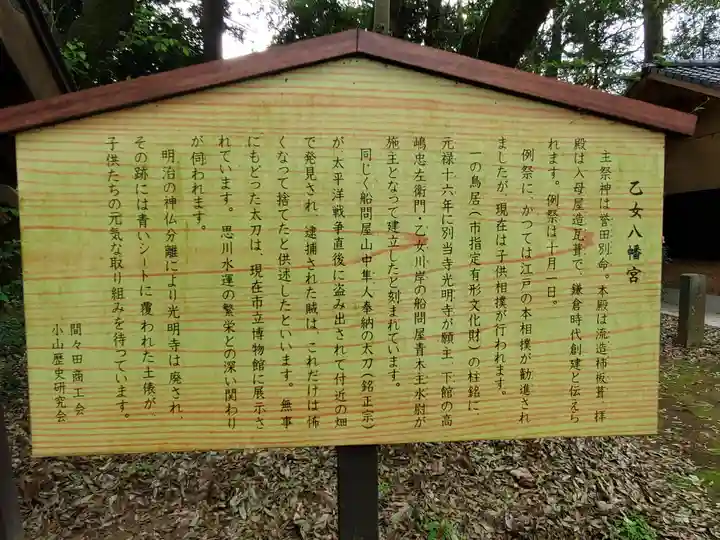 乙女八幡宮
主祭神は誉田別命。本殿は流造杮板葺、拝
殿は入母屋造瓦葺で、鎌倉時代創建と伝えら
れます。例祭は十月一日。
例祭に、かつては江戸の本相撲が勧進され
ましたが、現在は子供相撲が行われます。
一の鳥居(市指定有形文化財)の柱銘に
元禄十六年に別当寺光明寺が願主、下館の高
嶋忠左衛門・乙女川岸の船問屋青木主水尉が
施主となって建立したと刻まれています。
同じく船問屋山中隼人奉納の太刀(銘正宗)
が、太平洋戦争直後に盗み出されて付近の畑
で発見され、逮捕された賊は、これだけは怖
くなって捨てたと供述したといいます。無事
にもどった太刀は、現在市立博物館に展示さ
れています。思川水運の繁栄との深い関わり
が伺われます。
明治の神仏分離により光明寺は廃され、
その跡には青いシートに覆われた土俵が、
子供たちの元気な取り組みを待っています。
間々田商工会
小山歴史研究会